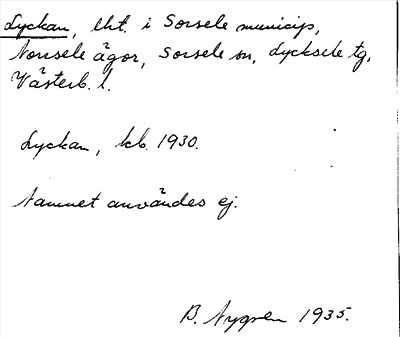 Lyckan, lht. i Sorsele municip,
Norrsele ägor, Sorsele sn, Lycksele tg,
Västerb. l.
Lyckan, kb. 1930.
Namnet användes ej.
B. Nygren 1935.